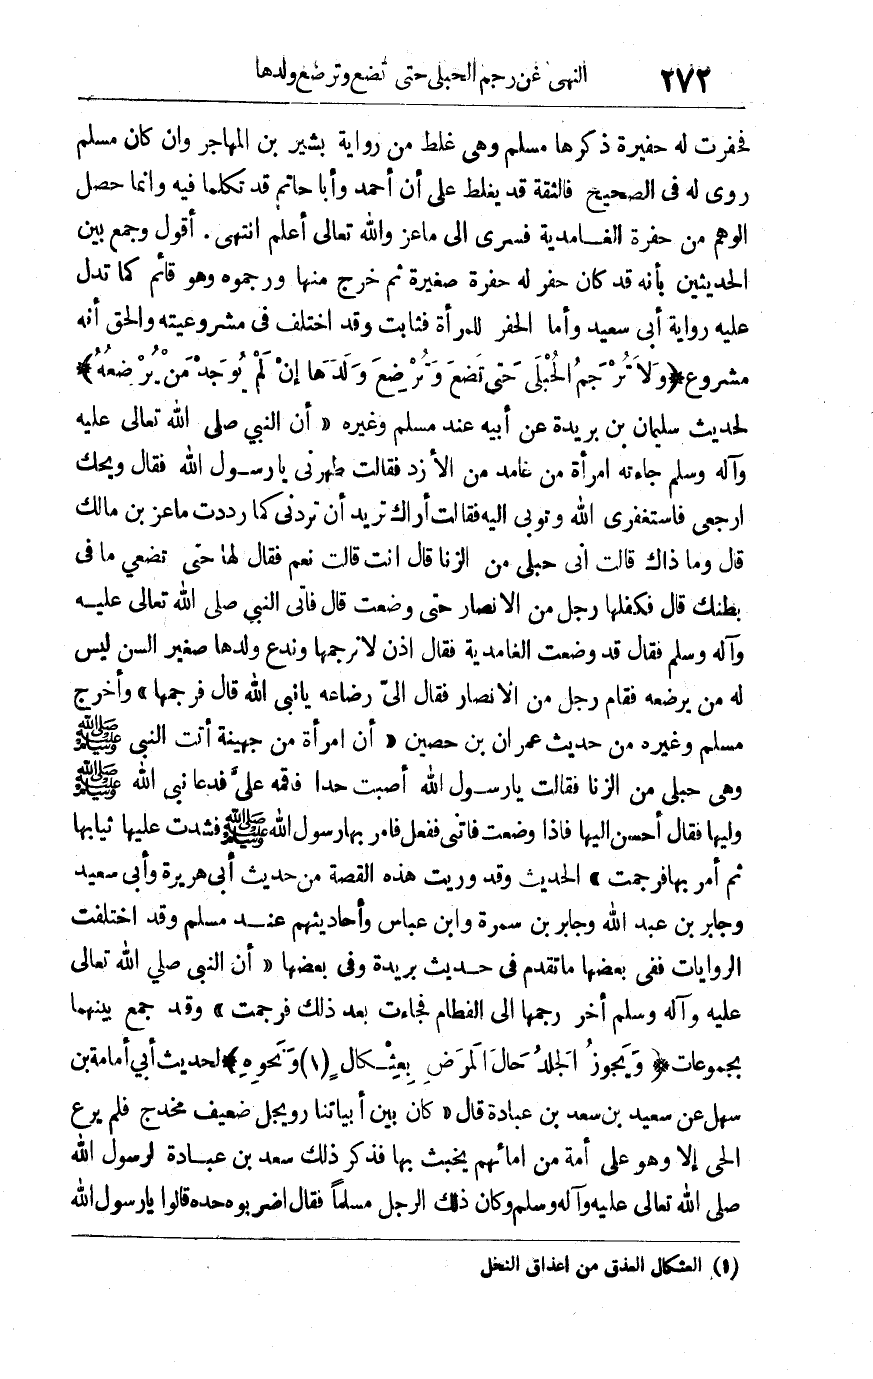 ٢٧٢ النهي عن رجم الحبلى حتى تضع وترضع ولدها
فحفرت له حفيرة ذكرها مسلم وهى غلط من رواية بشير بن المهاجر وان كان مسلم
روى له فى الصحيح فالثقة قد يغلط على أن أحمد وأبا حاتم قد تكلما فيه وانما حصل
الوهم من حفرة الغامدية فسرى الى ماعز والله تعالى أعلم انتهى . أقول وجمع بين
الحديثين بأنه قد كان حفر له حفرة صغيرة ثم خرج منها ورجموه وهو قائم كما تدل
عليه رواية أبى سعيد وأما الحفر للمرأة فثابت وقد اختلف فى مشروعيته والحق أنه
مشروع ﴿وَلاَ تُرْجَمُ الْحُبْلَى حَتى تَضَعَ وَتُرْضِعَ وَلَدَهَا إِنْ لَمْ يُوجَدْ مَنْ يُرْضِعُهُ﴾
لحديث سليمان بن بريدة عن أبيه عند مسلم وغيره « أن النبي صلى الله تعالى عليه
وآله وسلم جاءته امرأة من غامد من الأزد فقالت طهرنى يارسول الله فقال ويحك
ارجعى فاستغفرى الله وتوبى اليه فقالت أراك تريد أن تردنى كما رددت ماعز بن مالك
قال وما ذاك قالت أنى حبلى من الزنا قال انت قالت نعم فقال لها حتى تضعي ما فى
بطنك قال فكفلها رجل من الانصار حتى وضعت قال فأتى النبي صلى الله تعالى عليه
وآله وسلم فقال قد وضعت الغامدية فقال اذن لانرجمها وندع ولدها صغير السن ليس
له من يرضعه فقام رجل من الانصار فقال الىّ رضاعه يانبى الله قال فرجمها » وأخرج
مسلم وغيره من حديث عمران بن حصين « أن امرأة من جهينة أتت النبى ﷺ
وهى حبلى من الزنا فقالت يارسول الله أصبت حدا فاقمه علىَّ فدعا نبى الله ﷺ
وليها فقال أحسن اليها فاذا وضعت فاتنى ففعل فامر بها رسول الله ﷺ فشدت عليها ثيابها
ثم أمر بها فرجمت » الحديث وقد وريت هذه القصة من حديث أبى هريرة وأبى سعيد
وجابر بن عبد الله وجابر بن سمرة وابن عباس وأحاديثهم عند مسلم وقد اختلفت
الروايات ففى بعضها ماتقدم فى حديث بريدة وفى بعضها « أن النبى صلي الله تعالى
عليه وآله وسلم أخر رجمها الى الفطام فجاءت بعد ذلك فرجمت » وقد جمع بينهما
بجموعات ﴿وَيَجوزُ الجَلدُ حَالَ المرَضِ بِعِثْكَالٍ (١) وَنَحوِهِ﴾ لحديث أبي أمامة بن
سهل عن سعيد بن سعد بن عبادة قال « كان بين أبياتنا رويجل ضعيف مخدج فلم يرع
الحى إلا وهو على أمة من امائهم يخبث بها فذكر ذلك سعد بن عبادة لرسول الله
صلى الله تعالى عليه وآله وسلم وكان ذلك الرجل مسلماً فقال اضربوه حده قالوا يارسول الله
(١) العثكال العذق من اعذاق النخل